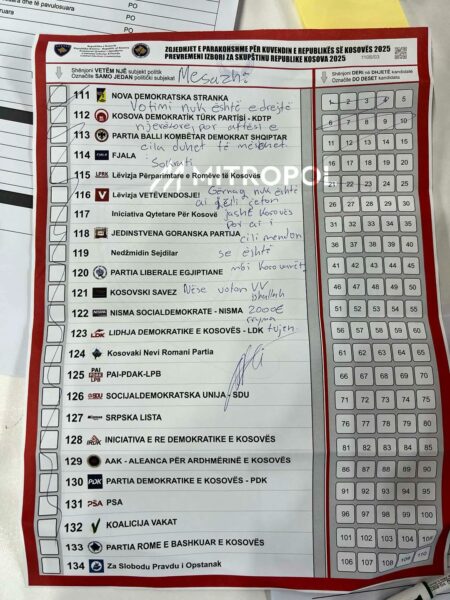 PO
eve dhe të pavulosura
PO
ZGJEDHJET E PARAKOHSHME PËR KUVENDIN E REPUBLIKËS SË KOSOVËS 2025
PREVREMENI IZBORI ZA SKUPŠTINU REPUBLIKE KOSOVA 2025
Shënjoni VETËM NJË subjekt politik
Označite SAMO JEDAN politički subjekat
Mesazhi
Shënjoni DERI në DHJETË kandidatë
Označite DO DESET kandidata
111 NOVA DEMOKRATSKA STRANKA
1 2 3 4 5
Votimi nuk është e drejtë
112 KOSOVA DEMOKRATİK TÜRK PARTİSİ - KDTP
6 7 8 9 10
njerëzore, por aftësi e
113 PARTIA BALLI KOMBËTAR DEMOKRAT SHQIPTAR
11 12 13 14 15
cila duhet të mësohet
114 FJALA
16 17 18 19 20
Sokrati
METROPOL
115 LPRK Lëvizja Përparimtare e Romëve të Kosovës
21 22 23 24 25
116 Lëvizja VETËVENDOSJE!
nuk është
26 27 28 29 30
ai
117 Iniciativa Qytetare Për Kosovë
jashtë Kosovës
31 32 33 34 35
por ai i
118 JEDINSTVENA GORANSKA PARTIJA
36 37 38 39 40
cili mendon
119 Nedžmidin Sejdilar
se është
41 42 43 44 45
120 PARTIA LIBERALE EGJIPTIANE
mbi Kosovarët
46 47 48 49 50
121 KOSOVSKI SAVEZ
Nëse voton VV
51 52 53 54 55
122 NISMA SOCIALDEMOKRATE - NISMA
2000€
56 57 58 59 60
rryma
123 LDK LIDHJA DEMOKRATIKE E KOSOVËS - LDK
61 62 63 64 65
124 Kosovaki Nevi Romani Partia
66 67 68 69 70
125 PAI PDAK LPB PAI-PDAK-LPB
71 72 73 74 75
126 SDU SOCIJALDEMOKRATSKA UNIJA - SDU
76 77 78 79 80
127 SRPSKA LISTA
81 82 83 84 85
128 IRDK INICIATIVA E RE DEMOKRATIKE E KOSOVËS
86 87 88 89 90
129 AAK - ALEANCA PËR ARDHMËRINË E KOSOVËS
91 92 93 94 95
130 PDK PARTIA DEMOKRATIKE E KOSOVËS - PDK
96 97 98 99 100
131 PSA
101 102 103 104 105
132 KOALICIJA VAKAT
106 107 108 109 110
133 PARTIA ROME E BASHKUAR E KOSOVËS
134 Za Slobodu Pravdu i Opstanak